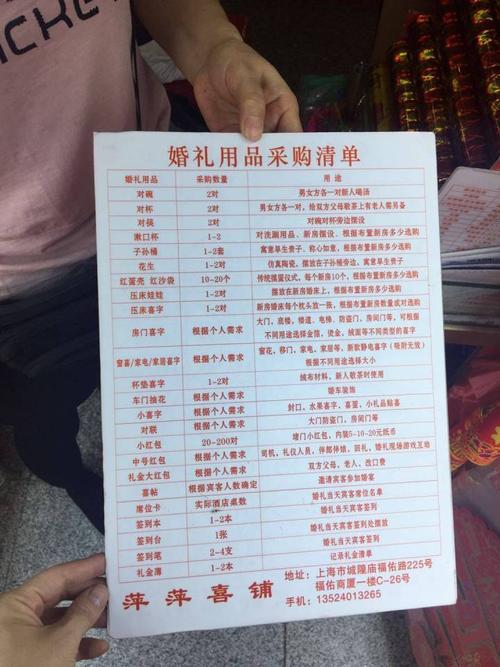 婚礼用品采购清单
婚礼用品 采购数量 用 途
对碗 2对 男女方各一对新人喝汤
对杯 2对 男女方各一对,给双方父母敬茶上有老人需另备
对筷 2对 对碗对杯旁边摆设
漱口杯 1-2 对洗漱用品、新房摆设、根据布置新房多少选购
子孙桶 1-2套 寓意早生贵子、称心如意,根据布置新房多少选购
花生 1-2对 仿真陶瓷,摆放在子孙桶旁边,寓意早生贵子
红蛋壳 红沙袋 10-20个 传统摆蛋仪式,每个新房10个,根据布置新房多少选购
压床娃娃 1-2对 摆放在新房婚床上,根据布置新房多少选购
压床喜字 1-2对 新房婚床每个枕头放一张,根据布置新房数量或对选购
房门喜字 根据个人需求 大门、底楼、楼道、电梯、防盗门、房间门等,可根据
不同用途选择金箔,烫金,绒面等不同类型的喜字
窗喜/家电/家居喜字 根据个人需求 窗花,移门,家电,家居等,新款静电喜字(吸附无痕)
根据不同用途选择大小
杯垫喜字 1-2对 绒布材料,新人敬茶时使用
车门抽花 根据个人需求 婚车装饰
小喜字 根据个人需求 封口,水果喜字,喜蛋,小礼品贴喜
对联 根据个人需求 大门防盗门,房间门等
小红包 20-200对 堵门小红包,内装5-10-20元纸币
中号红包 根据个人需求 司机,礼仪人员,伴郎伴娘,回礼,婚礼现场游戏互动
礼金大红包 根据个人需求 双方父母,老人,改口费
喜帖 根据宾客人数确定 邀请宾客参加婚宴
席位卡 实际酒店桌数 婚礼当天宾客席位名单
签到本 1-2本 婚礼当天宾客签到
签到台 1张 婚礼当天宾客签到处摆放
签到笔 2-4支 婚礼当天宾客签到
礼金薄 1-2本 记录礼金清单
萍萍喜铺
地址:上海市城隍庙福佑路225号
福佑商厦一楼C-26号
手机:13524013265